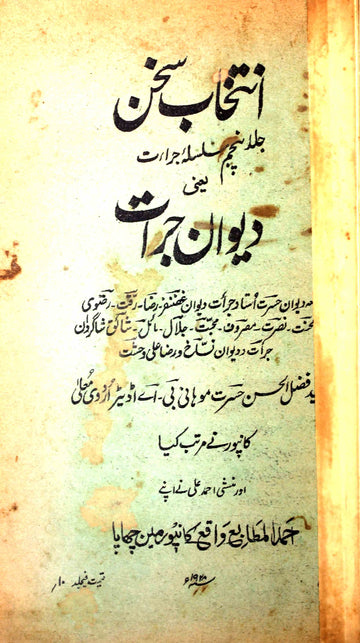 انتخاب سخن
جلد پنجم سلسلۂ جرأت
یعنی
دیوان جرأت
دیوان حسرت اُستاد جرأت دیوان غضنفر۔ رضا۔ رقت۔ رضوی
محنت۔ نصرت۔ مصروف۔ محبت۔ جلال۔ مائل۔ شائق شاگردان
جرأت و دیوان نساخ و رضا علی وحشت
فضل الحسن حسرت موہانی بی۔ اے اڈیٹر اُردوی معلّٰی
کانپور نے مرتب کیا
اور منشی احمد علی نے اپنے
المطابع واقع کانپور مین چھاپا
قیمت فیجلد ۱۰؍